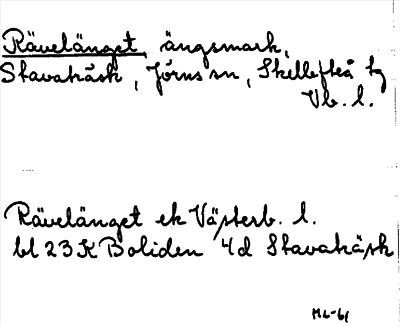 Rävelänget, ängsmark,
Stavaträsk, Jörns sn, Skellefteå tg
Vb. l.
Rävelänget ek Västerb. l.
bl 23 K Boliden 4d Stavaträsk
ML-61